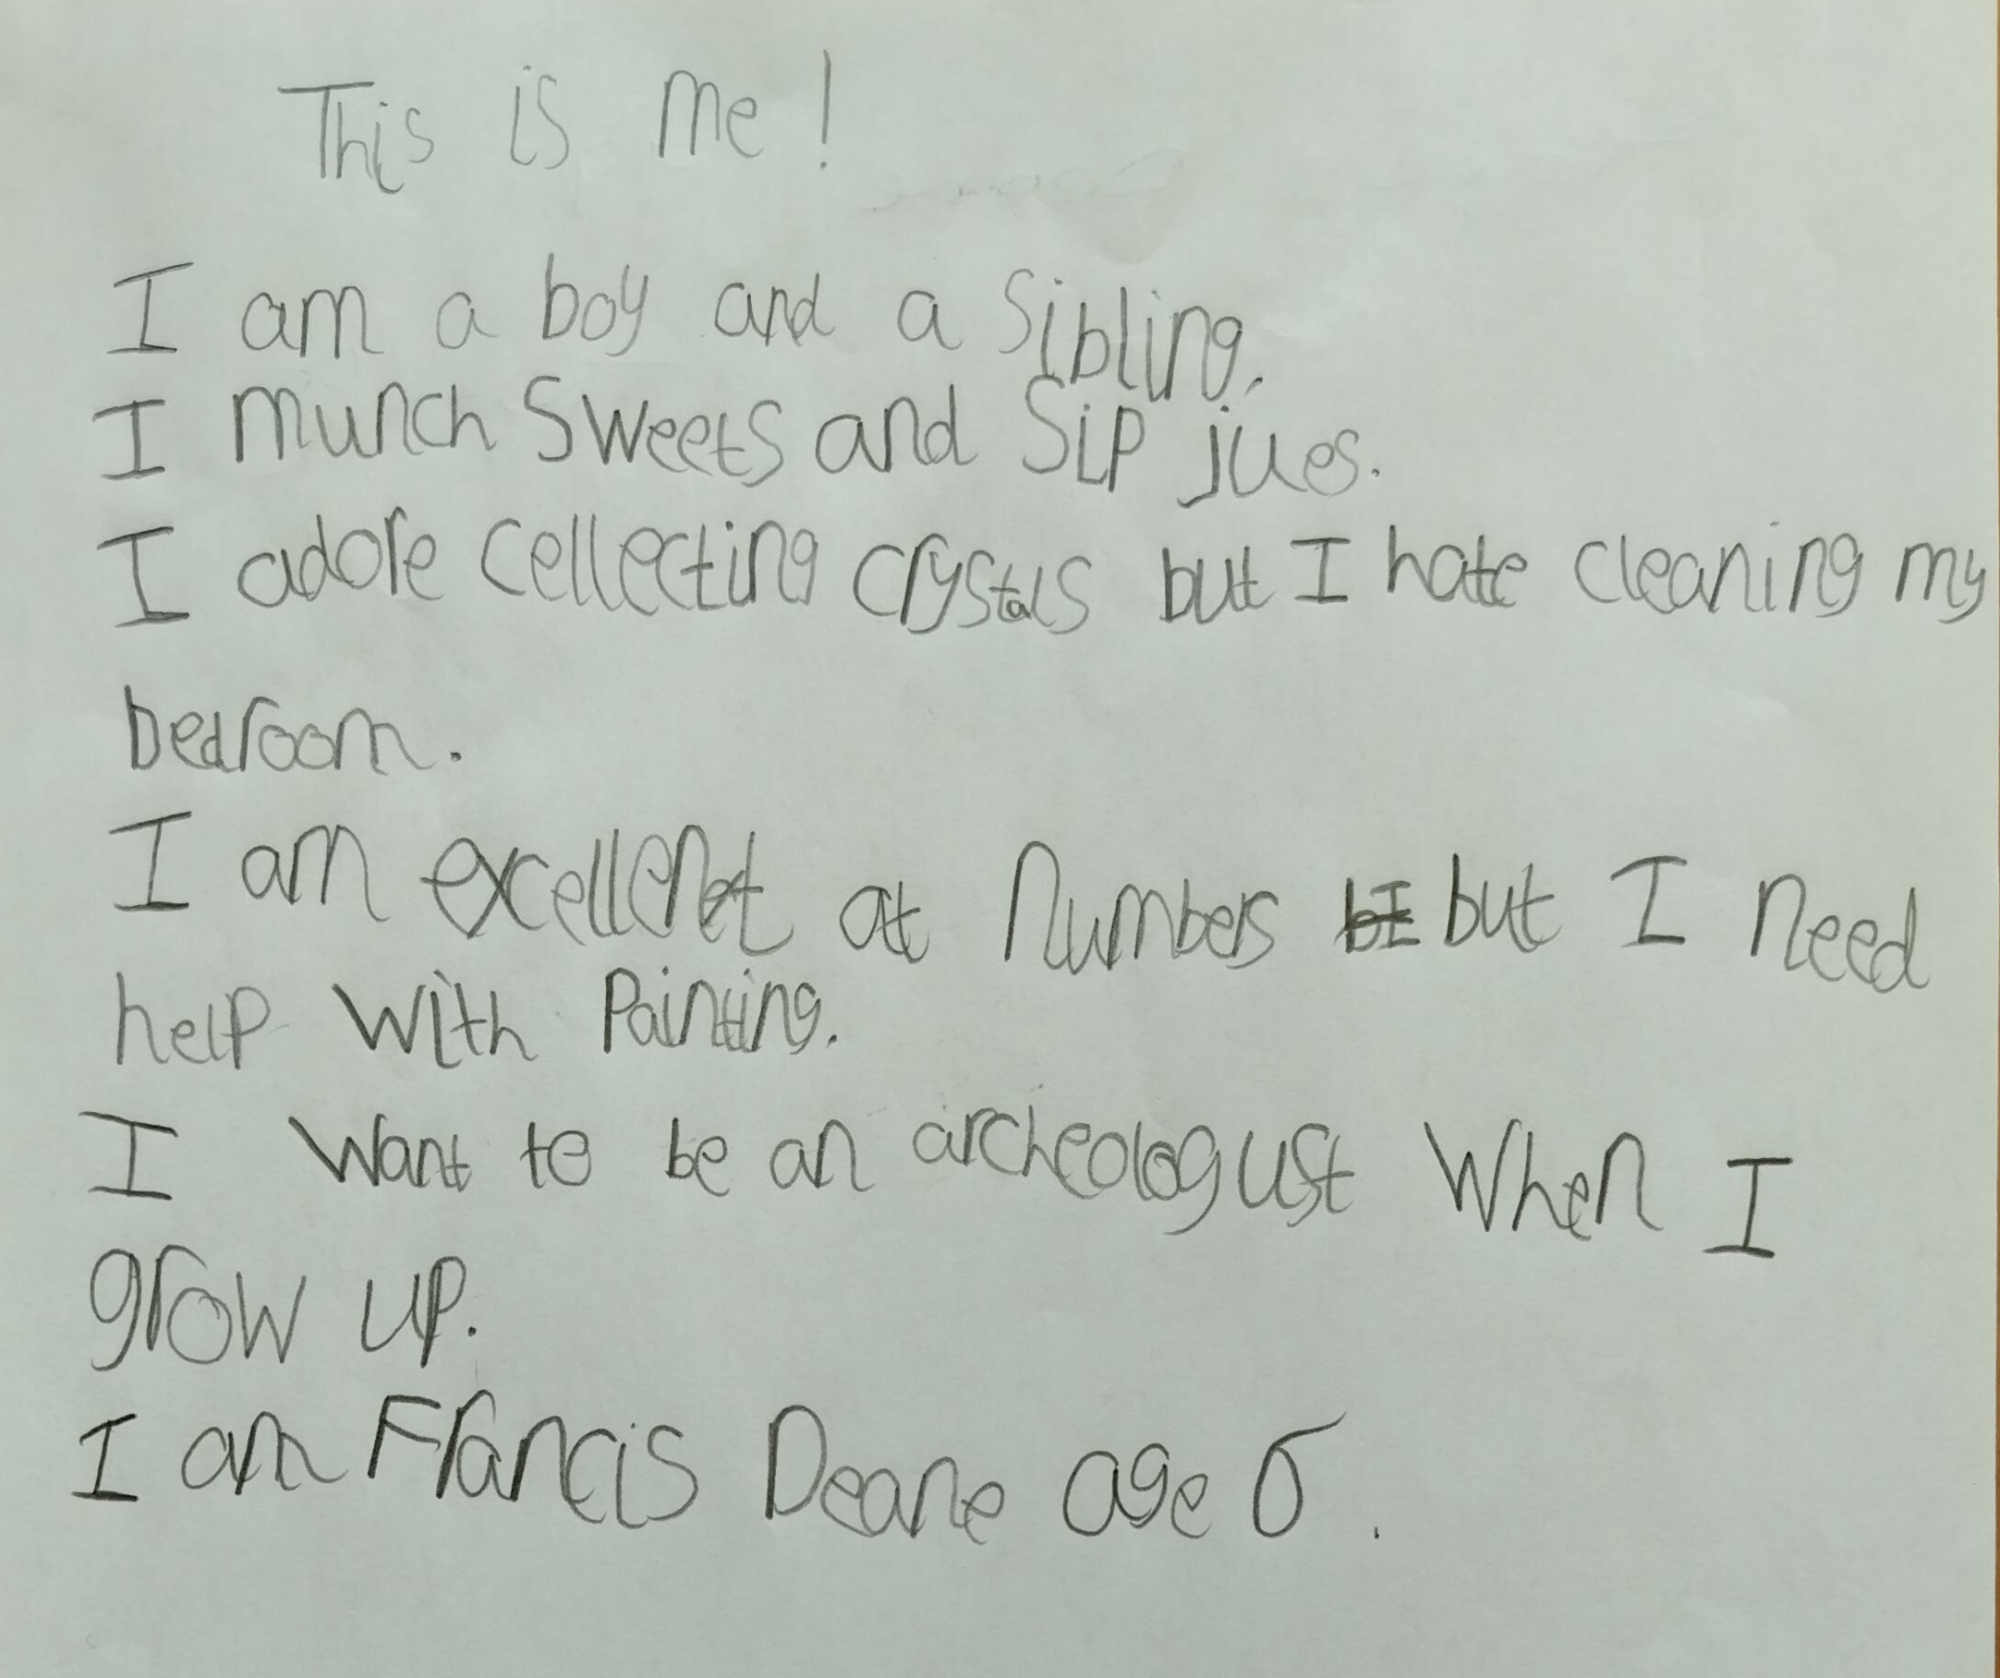 This is me!
I am a boy and a sibling.
I munch sweets and sip jues.
I adore cellecting crystals but I hate cleaning my
bedroom.
I am excellent at numbers but I need
help with painting.
I want to be an archeologust when I
grow up.
I am Francis Deane age 6.